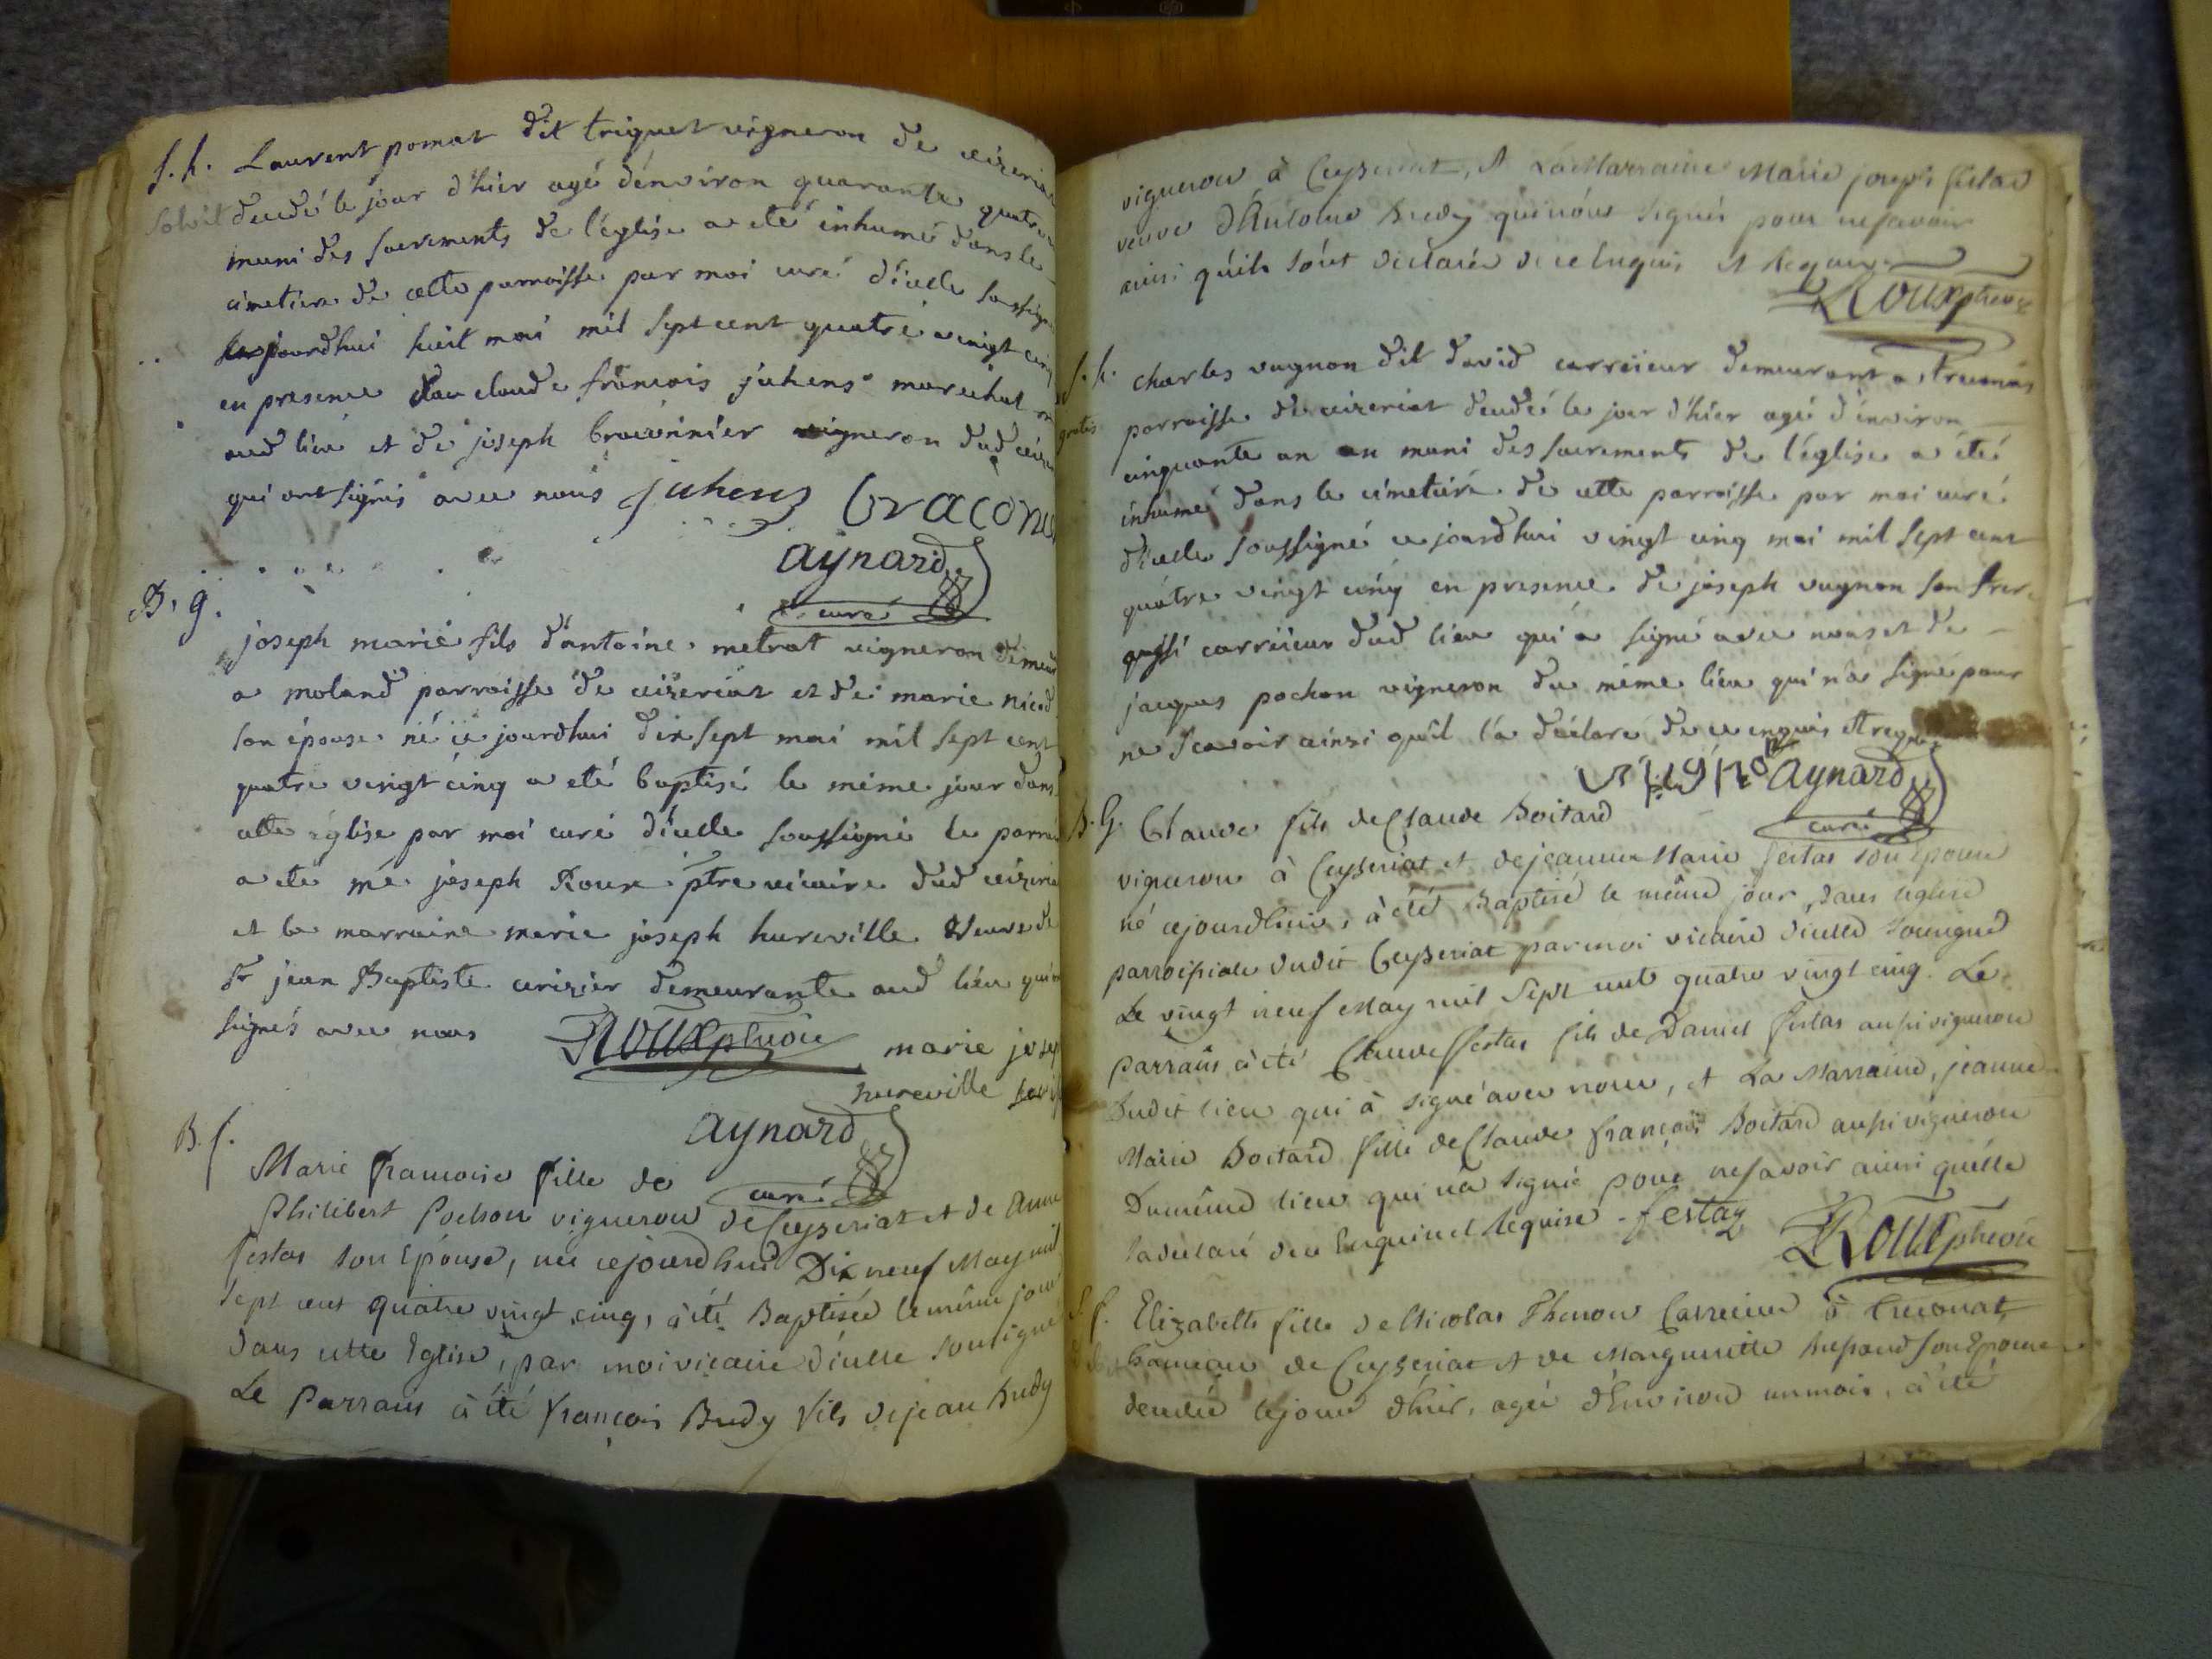 S. h. Laurent pomat dit triquet vigneron de ceizeriat
solvit decedé le jour d'hier agé d'environ quarante quatre
muni des sacrements de l'église a eté inhumé dans le
cimetiere de cette parroisse par moi curé d'icelle soussigné
cejourdhui huit mai mil sept cent quatre vingt cinq
en presence de claude françois juhens marechal
aud lieu et de joseph braconnier vigneron dud
qui ont signés avec nous juhens braconi
aynard
curé
B. g.
joseph marie fils d'antoine metrat vigneron demeu
a moland parroisse de ceizeriat et de marie nicod
son épouse né ce jourdhui dix sept mai mil sept cent
quatre vingt cinq a eté baptisé le même jour dans
cette église par moi curé d'icelle soussigné le parra
a eté me joseph Roux ptre vicaire dud ceizeria
et la marraine marie joseph hureville veuve de
sr jean Baptiste cerisier demeurante aud lieu qui
signés avec nous Roux ptre vic marie josep
hureville
aynard
curé
B. f.
Marie francoise fille de
Philibert Pochon vigneron de Ceyseriat et de Anne
festas son Epouse, née cejourdhui Dix neuf May mil
Sept cent quatre vingt cinq, à été Baptisée le même jour
dans cette Eglise, par moi vicaire d'icelle sousigné
Le Parrain à été françois Budy fils de jean Budy
vigneron à Ceyseriat, & La Marraine Marie joseph festas
veuve d'Antoine Budy qui n'ont signés pour ne savoir
ainsi qu'ils l'ont déclaré de ce Enquis et Requis
Roux ptre vic
S. h. charles vugnon dit david carrieur demeurant a treconas
gratis parroisse de ceizeriat decedé le jour d'hier agé d'environ
cinquante an muni des sacrements de l'église a été
inhumé dans le cimetiere de cette parroisse par moi curé
d'icelle soussigné ce jourdhui vingt cinq mai mil sept cent
quatre vingt cinq en presence de joseph vugnon son frere
aussi carrieur dud lieu qui a signé avec nous et de
jacques pochon vigneron du même lieu qui n'a signé pour
ne scavoir ainsi qu'il l'a déclaré de ce enquis et requis
vugnon aynard
curé
B. G. Claude fils de Claude Boitard
vigneron à Ceyseriat et de jeanne Marie festas son Epouse
né cejourdhui, à été Baptisé le même jour dans l'église
parroissiale dudit Ceyseriat par moi vicaire d'icelle sousigné
Le vingt neuf May mil Sept cent quatre vingt cinq. Le
Parrain à été Claude festas fils de Daniel festas aussi vigneron
Dudit lieu qui à signé avec nous, et La Marraine, jeanne
Marie Boitard fille de Claude françois Boitard aussi vigneron
Du même lieu qui n'a signé pour ne savoir ainsi qu'elle
l'a déclaré de ce Enquise et Requise. festaz
Roux ptre vic
S. f. Elizabeth fille de Nicolas Thenon Carrieur à treconat
hameau de Ceyseriat & de Marguerite son Epouse
decedée le jour d'hier, agée d'Environ un mois, à été